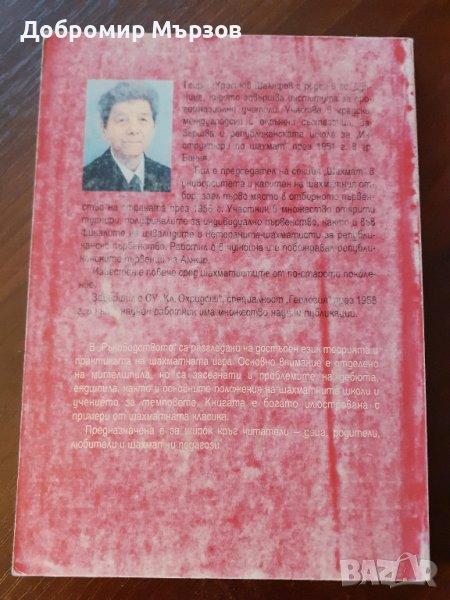 Добромир Мързов
Шаляров е роден в гр.
нице, където завършва института за про-
гимназиални учители. Участва в градски
международни и окръжни състезания. За-
вършва и републиканската школа за „Ин-
структори по шахмат" през 1951 г. в гр.
Банкя.
Бил е председател на секция „Шахмат" в
университета и капитан на шахматния от-
бор, заел първо място в отборното първен-
ство на столицата през 1956 г. Участник в множество открити
турнири, полуфиналите за индивидуално първенство, както и във
финалите на инвалидите и нетопаните-шахматисти за републи-
канско първенство. Работил е в чужбина и е побеждавал републи-
канските първенци на Алжир.
Известен е повече сред шахматистите от по-старото поколе-
ние.
Завършил е СУ „Кл. Охридски", специалност „Геология" през 1958
научен работник има множество научни публикации.
В „Ръководството" са разгледани на достъпен език теорията и
практиката на шахматната игра. Основно внимание е отделено
на мителшпила, но са засегнати и проблемите на дебюта,
ендшпила, както и основните положения на шахматните школи и
учението за темповете. Книгата е богато илюстрована с
примери от шахматната класика.
Предназначена е за широк кръг читатели – деца, родители,
любители и шахматни педагози.
BAZAR